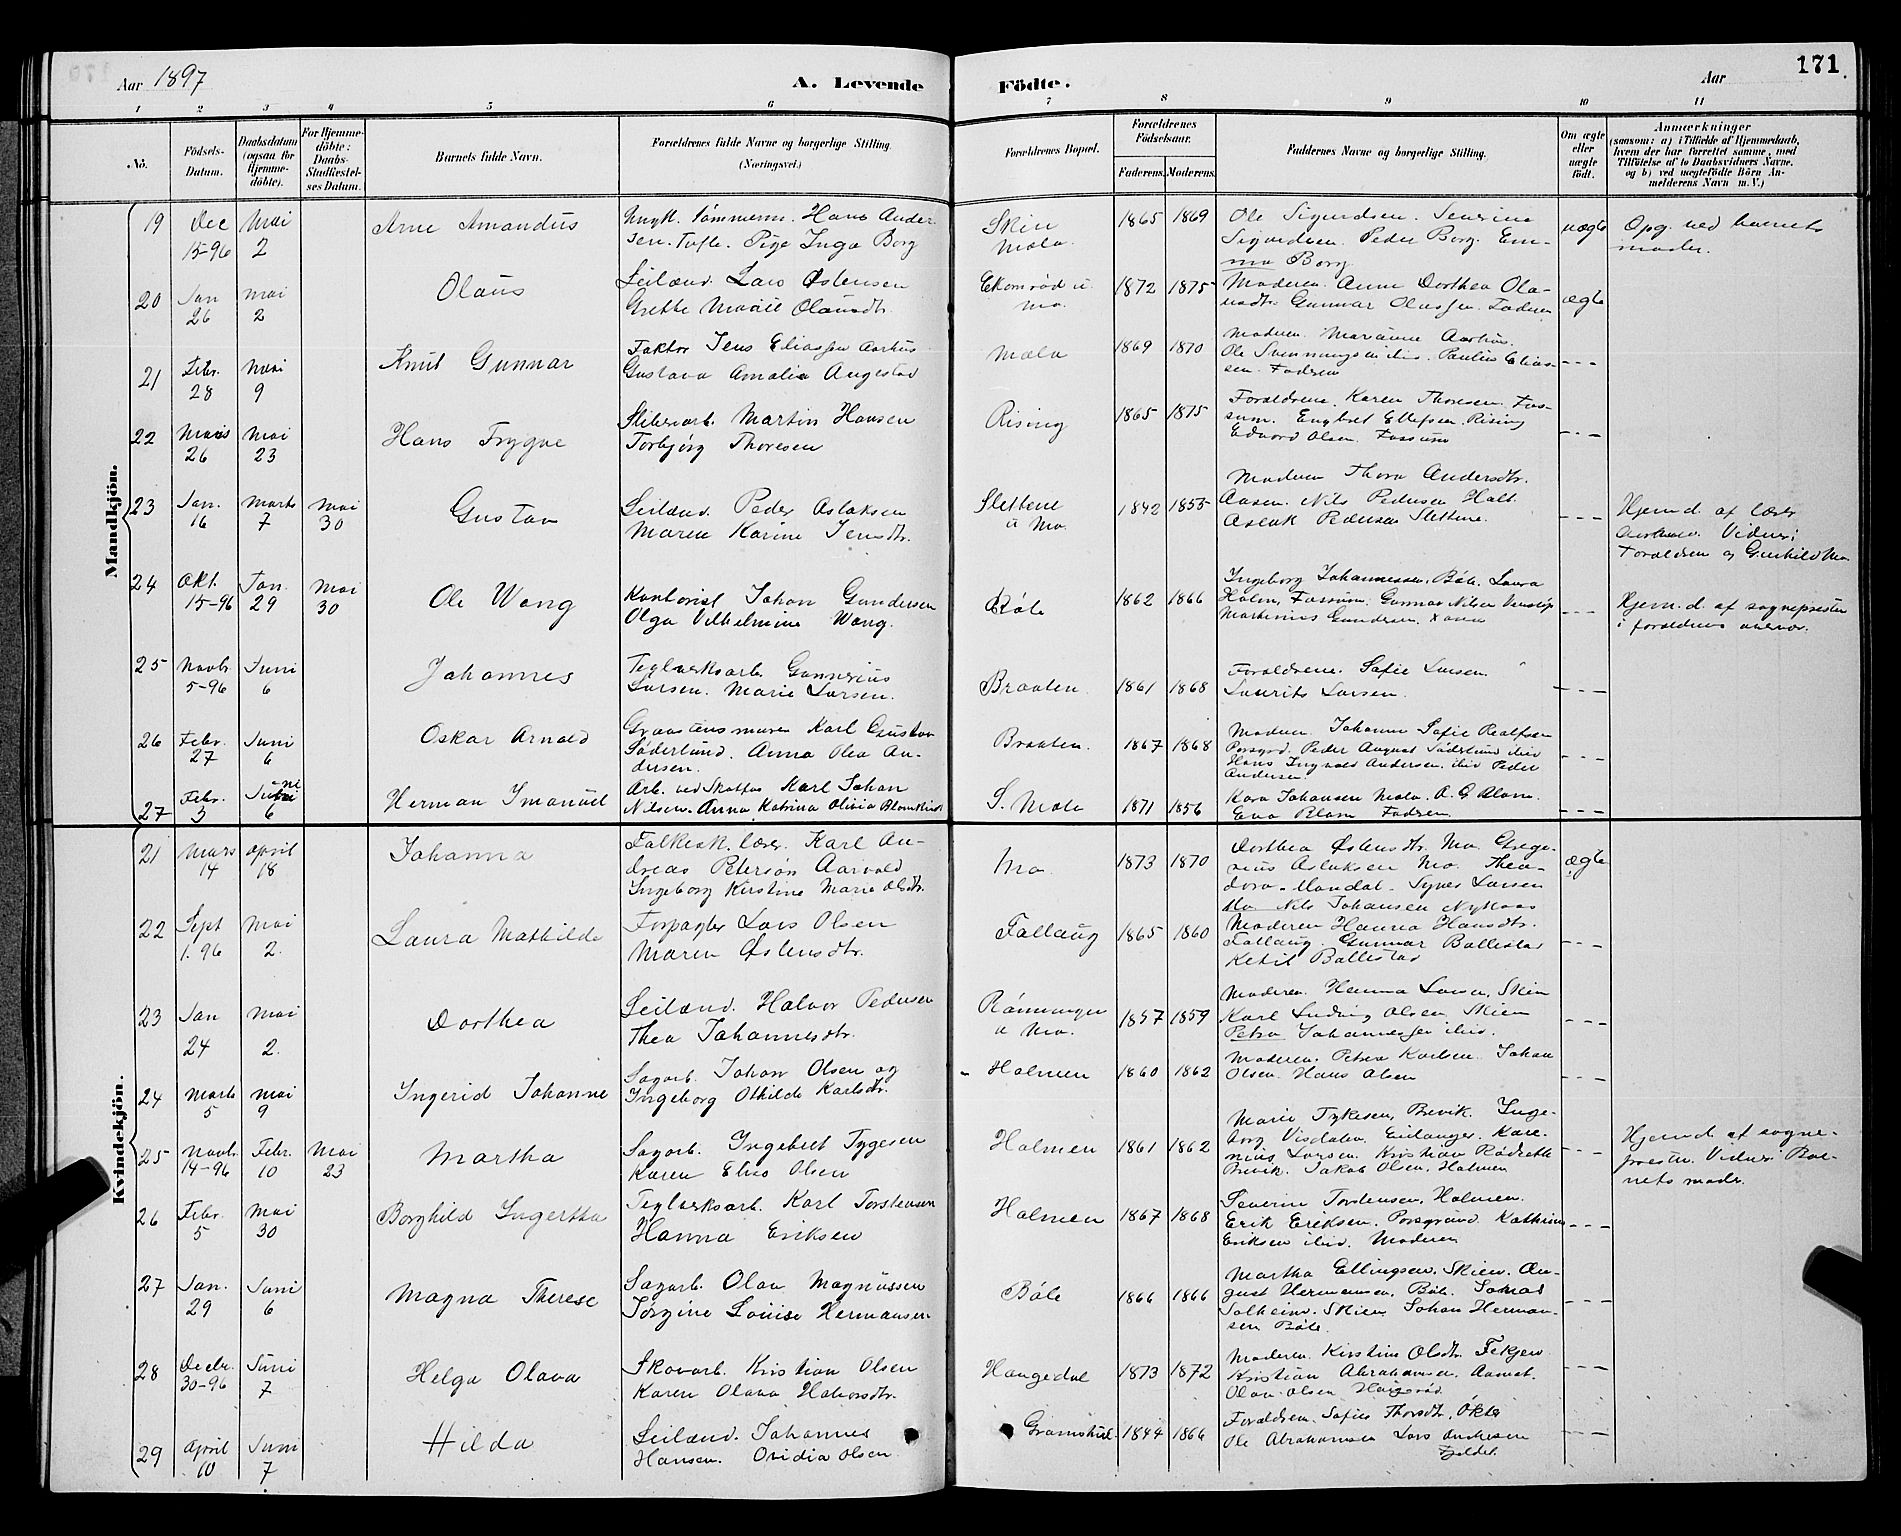 171
Aar 1897
A. Levende Födte.
Aar
1 2 3 4 5 6 7 8 9 10 11
No.
Födsels-Datum.
Daabsdatum (ogsaa for Hjemme-döbte).
For Hjemme-döbte: Daabs-Stadfæstel-ses Datum.
Barnets fulde Navn.
Forældrenes fulde Navne og borgerlige Stilling. (Næringsvei.)
Forældrenes Bopæl.
Forældrenes Födselsaar.
Faderens. Moderens.
Faddernes Navne og borgerlige Stilling.
Om ægte eller uægte födt.
Anmærkninger
(saasom: a) i Tilfælde af Hjemmedaab, hvem der har forrettet samme, med Tilföielse af to Daabsvidners Navne. og b) ved uægtefödte Börn An-melderens Navn m. V.)
Mandkjön.
19 Dec 15-96 Mai 2
Arne Amandus
Ungk. Tømmerm. Hans Ander
sen. Tufte. Pige Inga Borg
Skien
Mæla.
1865 1869
Ole Sigurdsen. Severine
Sigurdsen. Peder Borg. Em-
ma Borg
uægte
Opg. ved barnets
moder.
20 Jan 26 Mai 2
Olaus
Leilænd. Lars Østensen
Grethe Marie Olausdtr.
Ekornrød u.
Mo.
1872 1875
Moderen. Anne Dorthea Ola-
usdtr. Gunnar Olaussen. Faderen
ægte
21 Febr. 28 Mai 9
Knut Gunnar
Faktor Jens Eliassen Aarhus
Gustava Amalia Angestad
Mæla
1869 1870
Moderen. Marianne Aarhus.
Ole Svenningsen ibid. Pauline Elias-
sen. Faderen
22 Mars 26 Mai 23
Hans Trygve
Sliberiarb. Martin Hansen
Torbjørg Thoresen
Rising
1865 1875
Forældrene. Karen Thoresen. Fos-
sum. Engbret Ellefsen. Rising
Edvard Olsen. Fossum
23 Jan. 16 Marts 7 Mai 30
Gustav
Leilænd. Peder Aslaksen
Maren Karine Jensdtr.
Slettene
u Mo.
1842 1855
Moderen Thora Andersdtr.
Aasen. Nils Pedersen Holt.
Aslak Pedersen Slettene.
Hjemd. af lærer
Vidner:
Forældrene og Gunhild Mo
24 Okt. 15-96 Jan. 29 Mai 30
Ole Wang
Kontorist Johan Gundersen
Olga Vilhelmine Wang.
Bøle
1862 1866
Ingeborg Johannessen, Bøle. Laura
Holm, Fossum. Gunnar Nilsen Venstøp
Martinius Gundersen.
Hjem.d. af sogneprester
i forældrenes nærvær.
25 Novbr. 5-96 Juni 6
Johannes
Teglverksarb. Gunerius
Larsen. Marie Larsen.
Braaten.
1861 1868
Forældrene. Sofie Larsen.
Laurits Larsen.
26 Febr. 27 Juni 6
Oskar Arnold
Graastensmurer Karl Gustav
Söderlund. Anna Olea An-
dersen.
Braaten.
1867 1868
Moderen. Johanne Sofie Realfsen
Porsgrd. Peder August Söderlund ibid
Hans Ingvald Andersen. ibid Peder
Andersen.
27 Febr. 3 Juni 6
Herman Imanuel
Arb. ved Skotfos Karl Johan
Nilsen. Anna Katrina Olivia Blomkvist
S. Mæla
1871 1856
Kara Johansen Mæla. A. G. Blom.
Eva Blom Faderen.
Kvindekjön.
21 Mars 14 April 18
Johanna
Folkesk. lærer. Karl An-
dreas Peterson Aarvold
Ingeborg Kirstine Marie Olsdtr.
Mo.
1873 1870
Dorthea Østensdtr. Mo. Grego-
rius Aslaksen Mo. Thea-
dora Mandal. Synes Larsen
Mo Nils Johansen Nykaas
ægte
22 Sept 1.96 Mai 2.
Laura Mathilde
Forpagter Lars Olsen
Maren Østensdtr.
Follaug
1865 1860
Moderen Hanna Hansdtr.
Follaug. Gunnar Ballestad
Ketil Ballestad
23 Jan 24 Mai 2.
Dorthea
Leilænd. Halvor Pedersen
Thea Johannesdtr.
Rønningen
u Mo.
1857 1859
Moderen. Hanna Larsen. Skien
Karl Ludvig Olsen Skien
Petra Johannessen ibid.
24 Marts 5 Mai 9
Ingerid Johanne
Sagarb. Johan Olsen og
Ingeborg Othilde Karlsdtr.
Holmen
1860 1862
Moderen. Petrea Karlsen. Johan
Olsen. Hans Olsen
25 Novbr. 14-96 Febr. 10 Mai 23
Martha
Sagarb. Ingebret Tygesen
Karen Elise Olsen
Holmen
1861 1862
Marie Tykesen, Brevik. Inge-
borg Visdalen. Eidanger. Kare-
nius Larsen. Kristian Rødseth
Brevik. Jakob Olsen. Holmen
Hjemd. af sogne-
presten. Vidner: Bar-
nets moder.
26 Febr. 5 Mai 30
Borghild Ingertha
Teglverksarb. Karl Torstensen
Hanna Eriksen
Holmen
1867 1868
Severine Torstensen. Holmen.
Erik Eriksen. Porsgrund. Kathrine
Eriksen ibid. Moderen
27 Jan. 29 Juni 6
Magna Therese
Sagarb. Olav Magnussen
Jørgine Louise Hermansen
Bøle
1866 1866
Martha Ellingsen. Skien. Au-
gust Hermansen. Bøle. Jonas
Solheim. Skien. Johan Herman-
sen Bøle.
28 Decbr. 30-96 Juni 7
Helga Olava
Skovarb. Kristian Olsen
Karen Olava Halvorsdtr.
Haugedal
1873 1872
Moderen. Kirstine Olsdtr. Fekjær
Kristian Abrahamsen. Aamot.
Olav Olsen. Haugerød
29 April 10 Juni 7
Hilda
Leilænd. Johannes
Hansen. Ovidia Olsen
Gramshusl.
1844 1866
Forældrene. Sofie Thorsdtr. Økter
Ole Abrahamsen Lars Andersen
Fjeldet.